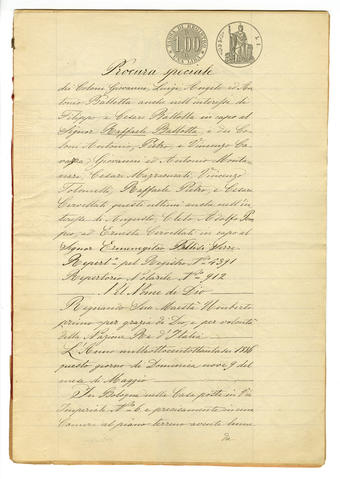 1.00
Procura speciale
dei Coloni Giovanni, Luigi, Angelo ed An-
tonio Ballotta anche nell'interesse di
Filippo e Cesare Ballotta in capo al
Signor Raffaele Ballotta, e dei Co-
loni Antonio, Pietro, e Vincenzo Ca-
Giovanni ed Antonio Monta-
Cesare Vincenzo
Tolomelli, Raffaele Pietro, e Cesare
Cervellati questi ultimi anche nell'in-
teresse di Augusto, Cleto Adolfo
ed Ernesta Cervellati in capo al
Signor Ermenegildo
Repert.° pel Registro N.° 4391
Repertorio Notarile N.° 912
Nel Nome di Dio
Regnando Sua Maestà Umberto
primo per grazia di Dio, e per volontà
della Nazione Re d'Italia
L'Anno milleottocentottantasei 1886
questo giorno di Domenica nove 9 del
mese di Maggio
In Bologna nella Casa posta in Via
Imperiale N.° 6 e precisamente in una
Camera al piano terreno avente lume
da